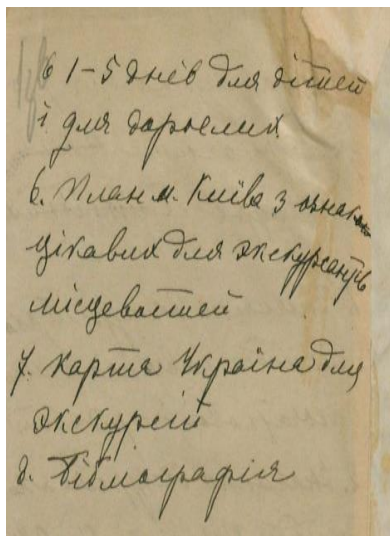 в 1-5 днів для дітей
і для дорослих
6. План м. Київа з ознак
цікавих для экскурсантів
місцевостей
7. Карта Україна для
экскурсій
8. Бібліографія